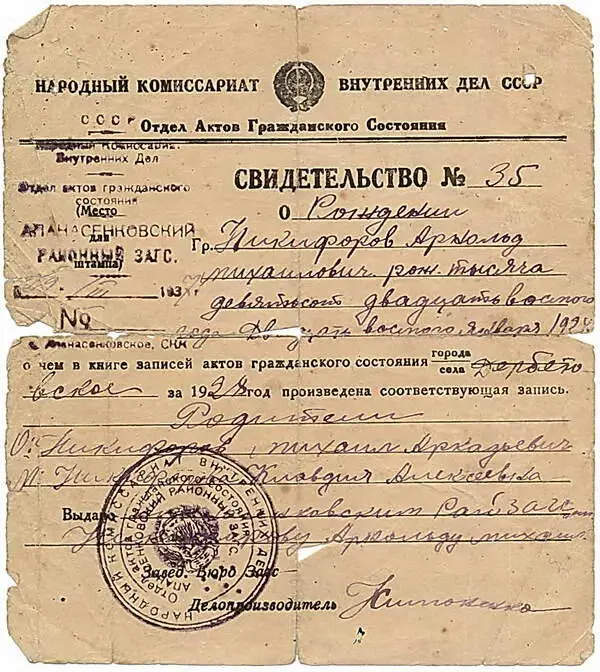 НАРОДНЫЙ КОМИССАРИАТ ВНУТРЕННИХ ДЕЛ СССР
СССР
Отдел Актов Гражданского Состояния
Народный Комиссариат
Внутренних Дел
Отдел актов гражданского
состояния
(Место для штампа)
АПАНАСЕНКОВСКИЙ
РАЙОННЫЙ ЗАГС.
193
№
с. Апанасенковское, СКК
СВИДЕТЕЛЬСТВО № 35
О Рождении
Гр. Никифоров Арнольд
Михайлович рож. тысяча
девятьсот двадцать восьмого
года Двадцать восьмого января 1928
о чем в книге записей актов гражданского состояния города села Дербетовское
за 1928 год произведена соответствующая запись.
Родители
От. Никифоров Михаил Аркадьевич
М. Клавдия Алексеевна
Выдано Райзагс
Арнольду Михаил
Завед. Бюро Загс
Делопроизводитель
НАРОДНЫЙ КОМИССАРИАТ ВНУТРЕННИХ ДЕЛ
Отдел актов гражданского состояния
АПАНАСЕНКОВСКИЙ РАЙОННЫЙ ЗАГС